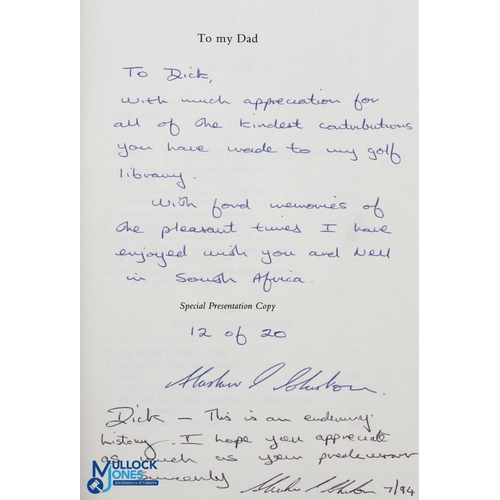 To my Dad
To Dick,
With much appreciation for
all of the kindest contributions
you have made to my golf
library.
With fond memories of
the pleasant times I have
enjoyed with you and Nell
in South Africa.
Special Presentation Copy
12 of 20
Dick – This is an endearing
history. I hope you appreciate
as much as your predecessor
Sincerely
7/94
MULLOCK
JONES